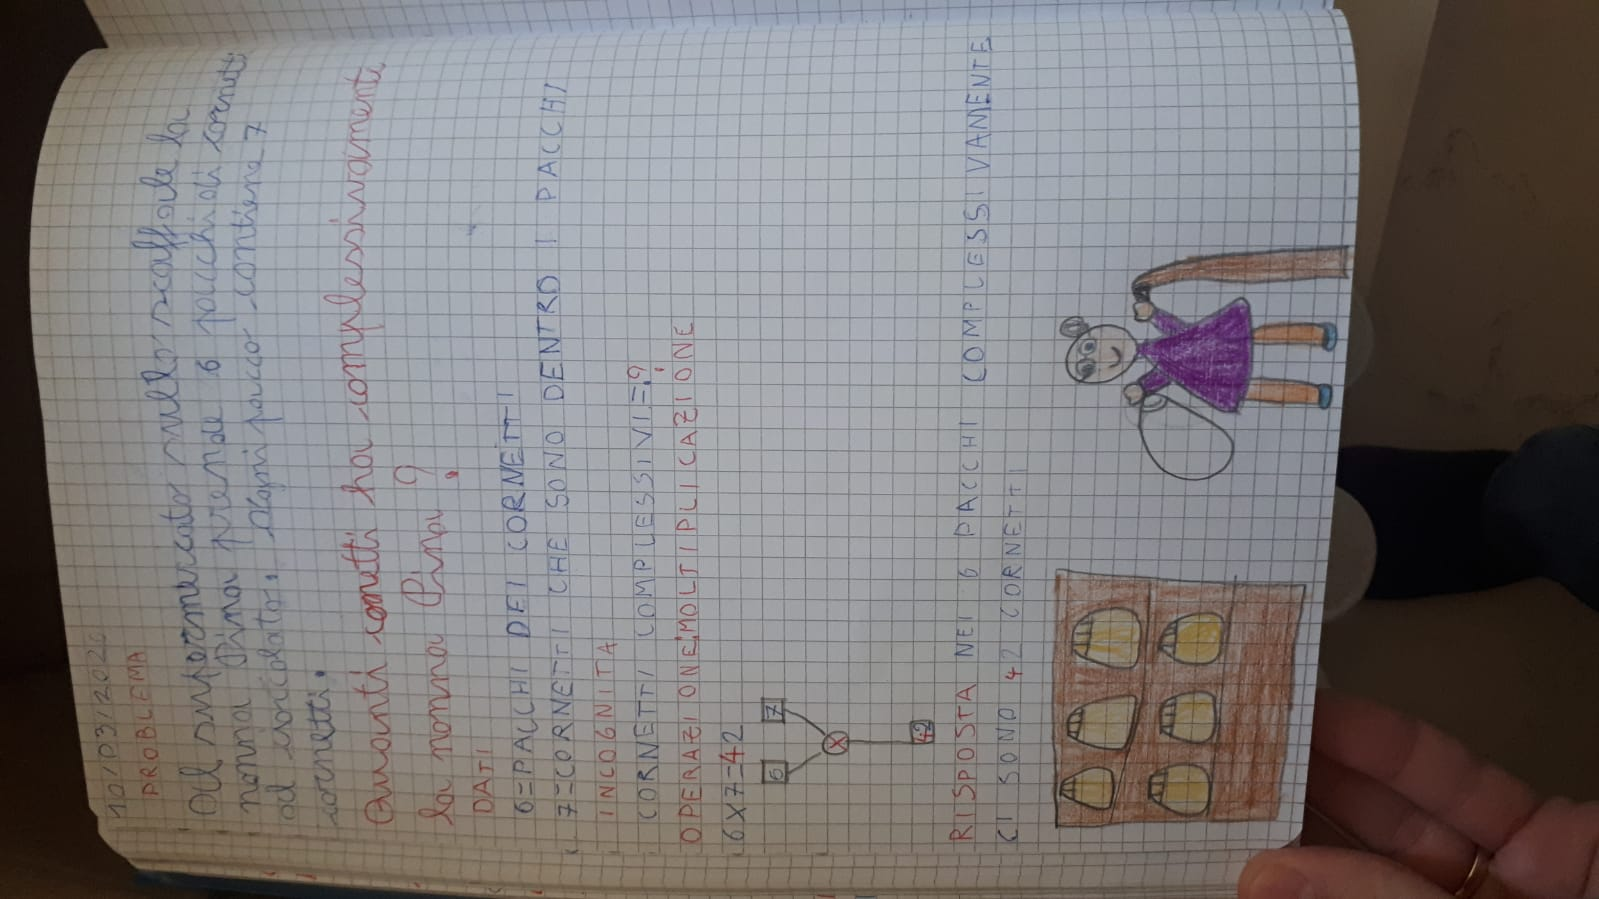 10/03/2026
PROBLEMA
Al supermercato nello scaffale la
nonna Pina prende 6 pacchi di cornetti
al cioccolato. Ogni pacco contiene 7
cornetti.
Quanti cornetti ha complessivamente
la nonna Pina?
DATI
6=PACCHI DEI CORNETTI
7=CORNETTI CHE SONO DENTRO I PACCHI
INCOGNITA
CORNETTI COMPLESSIVI=?
OPERAZIONE:MOLTIPLICAZIONE
6X7=42
6 7
X
42
RISPOSTA NEI 6 PACCHI COMPLESSIVAMENTE
CI SONO 42 CORNETTI